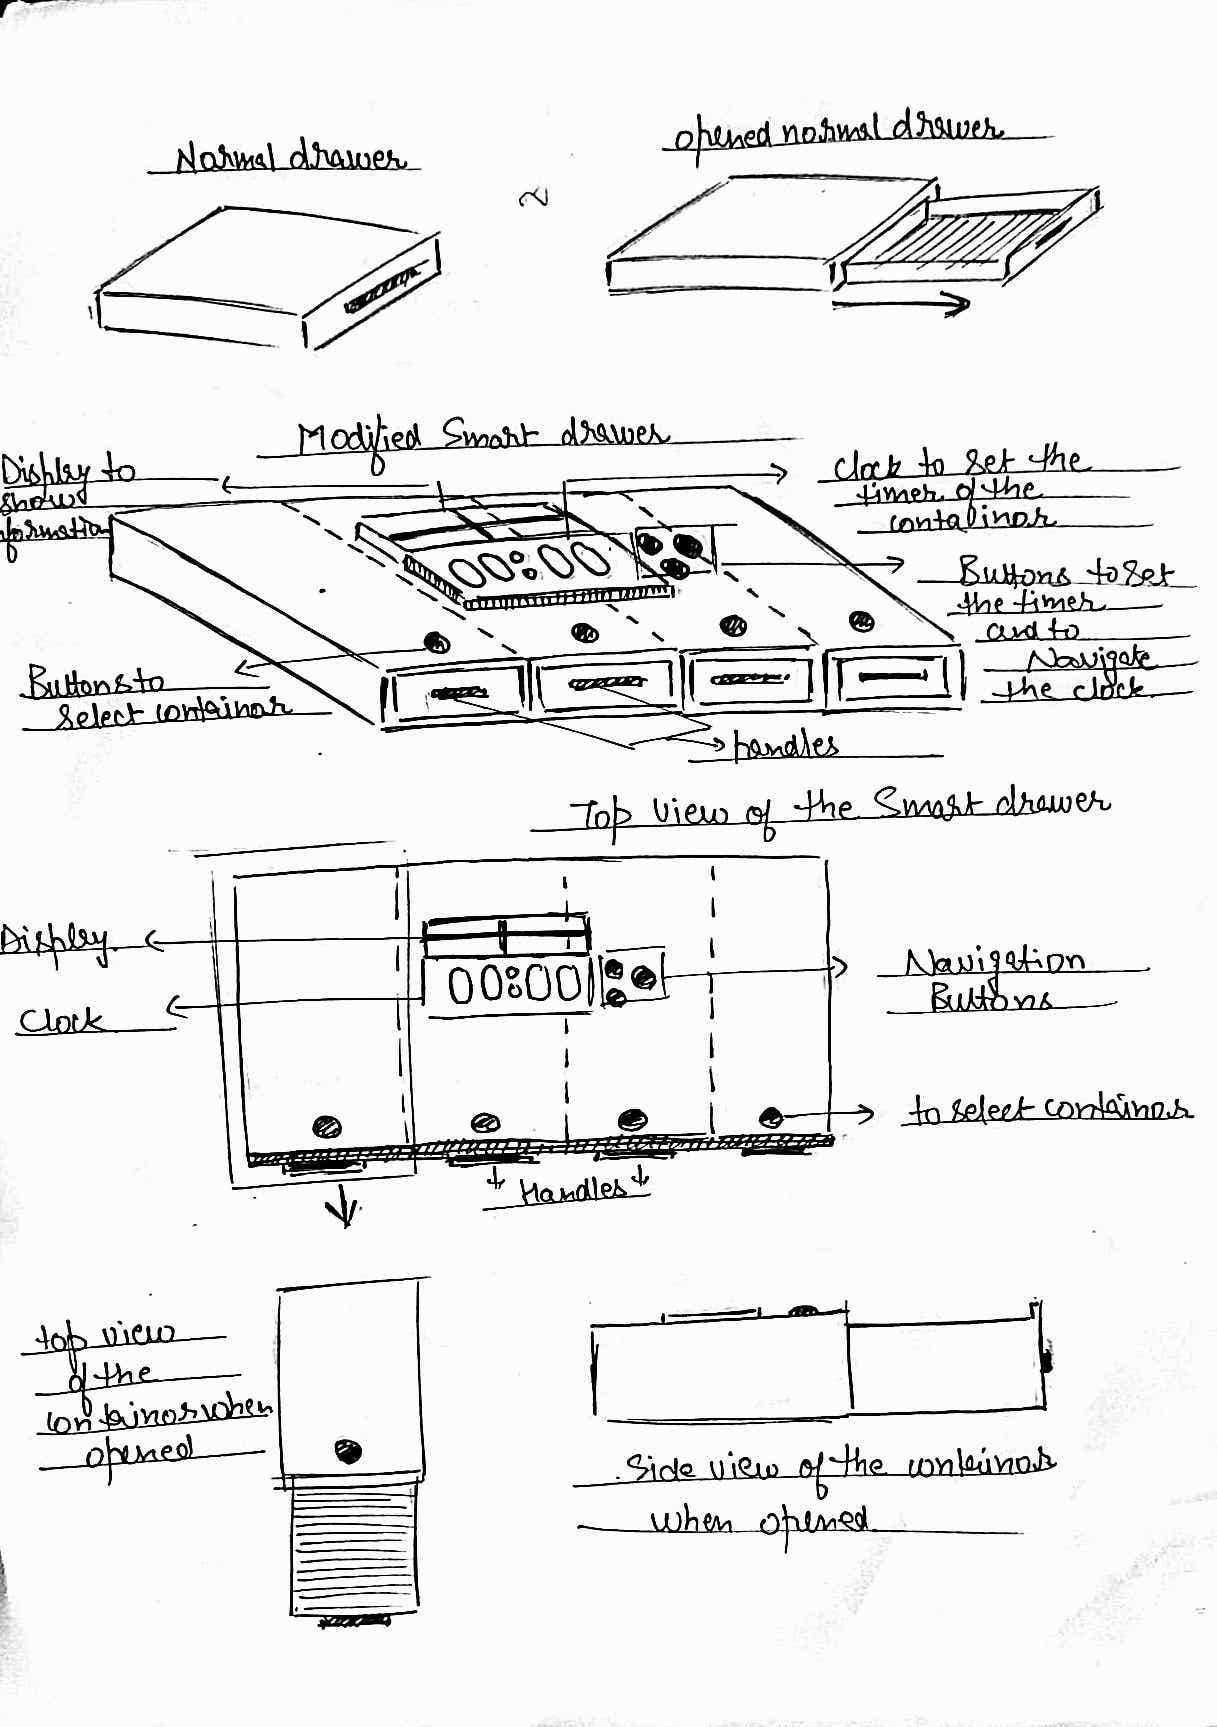 Normal drawer
opened normal drawer
Modified Smart drawer
Display to
show
formation
Clock to set the
timer of the
containor
Buttons to set
the timer
and to
Navigate
the clock.
Buttons to
select containor
handles
00:00
Top View of the Smart drawer
Display.
Clock
00:00
Navigation
Buttons
to select containor
Handles
top view
of the
containor when
opened
Side view of the containor
when opened